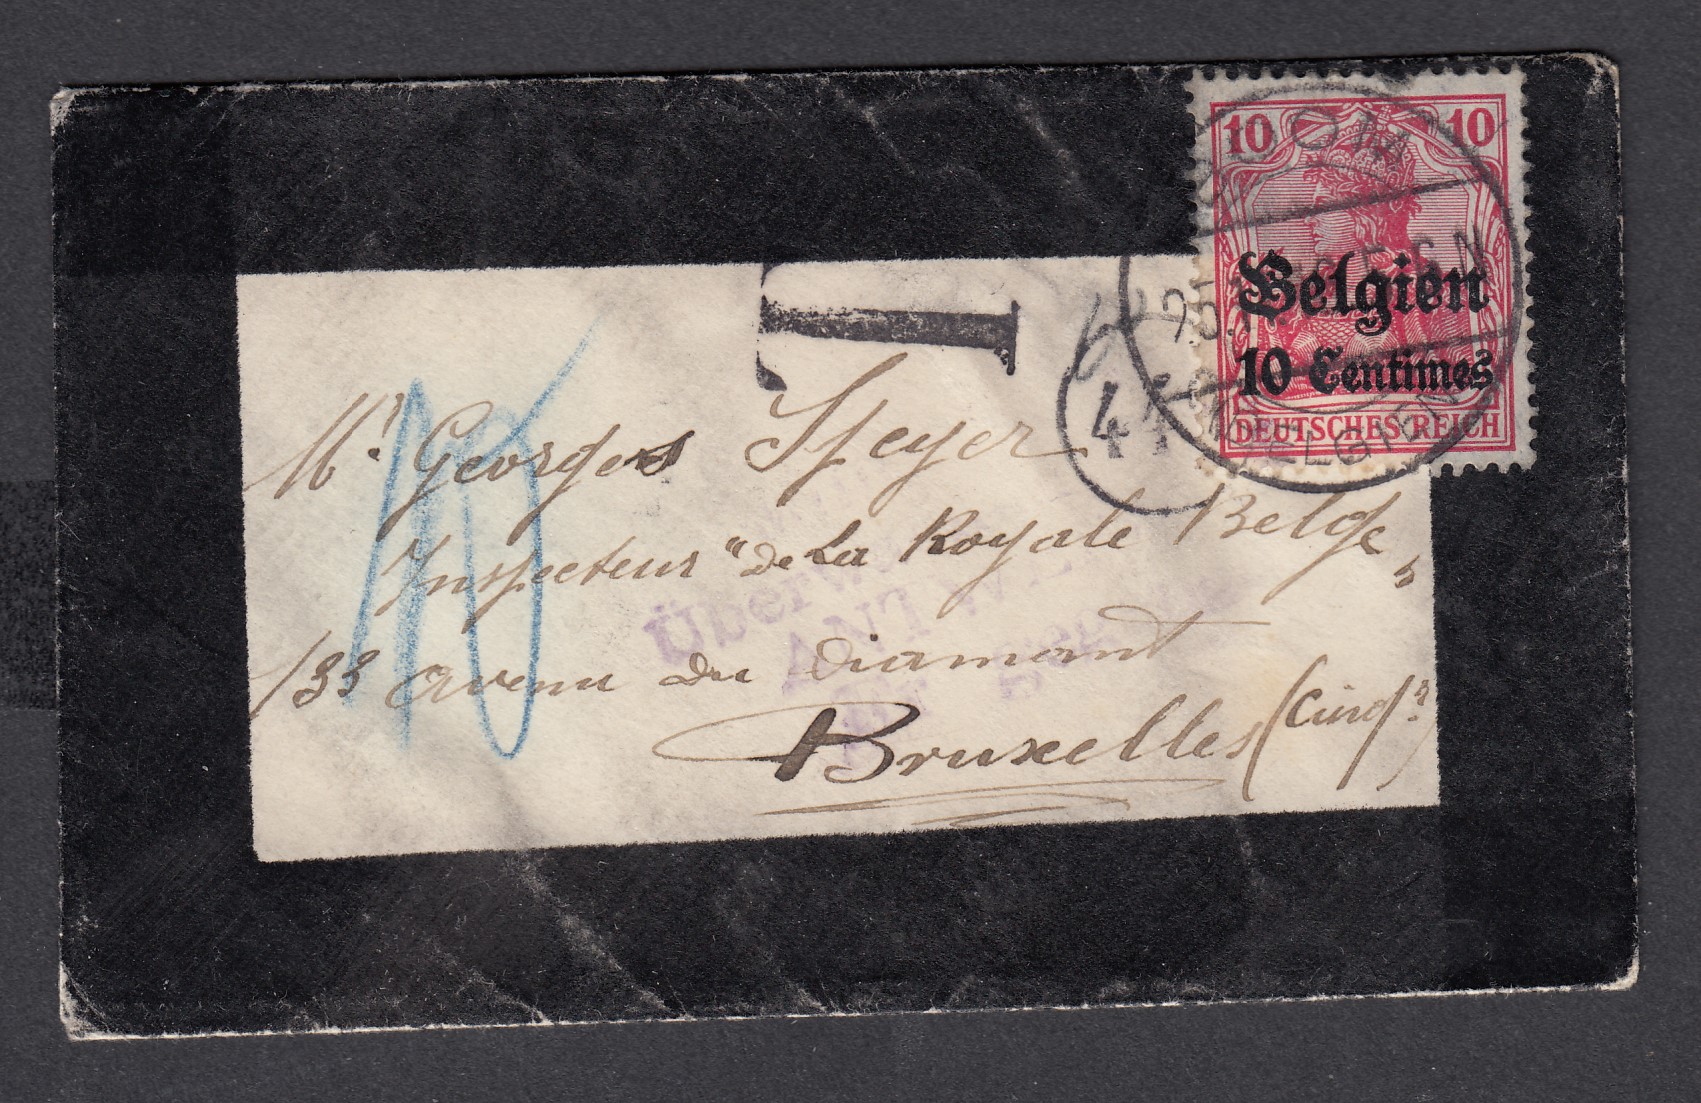 10 10
BOOM
Belgien
10 Centimes
DEUTSCHES REICH
BELGIEN
T
44
10
Mr. Georges Speyer
Inspecteur "de La Royale Belge"
133 avenu du Diamant
Bruxelles (Cinq.)
ANTW